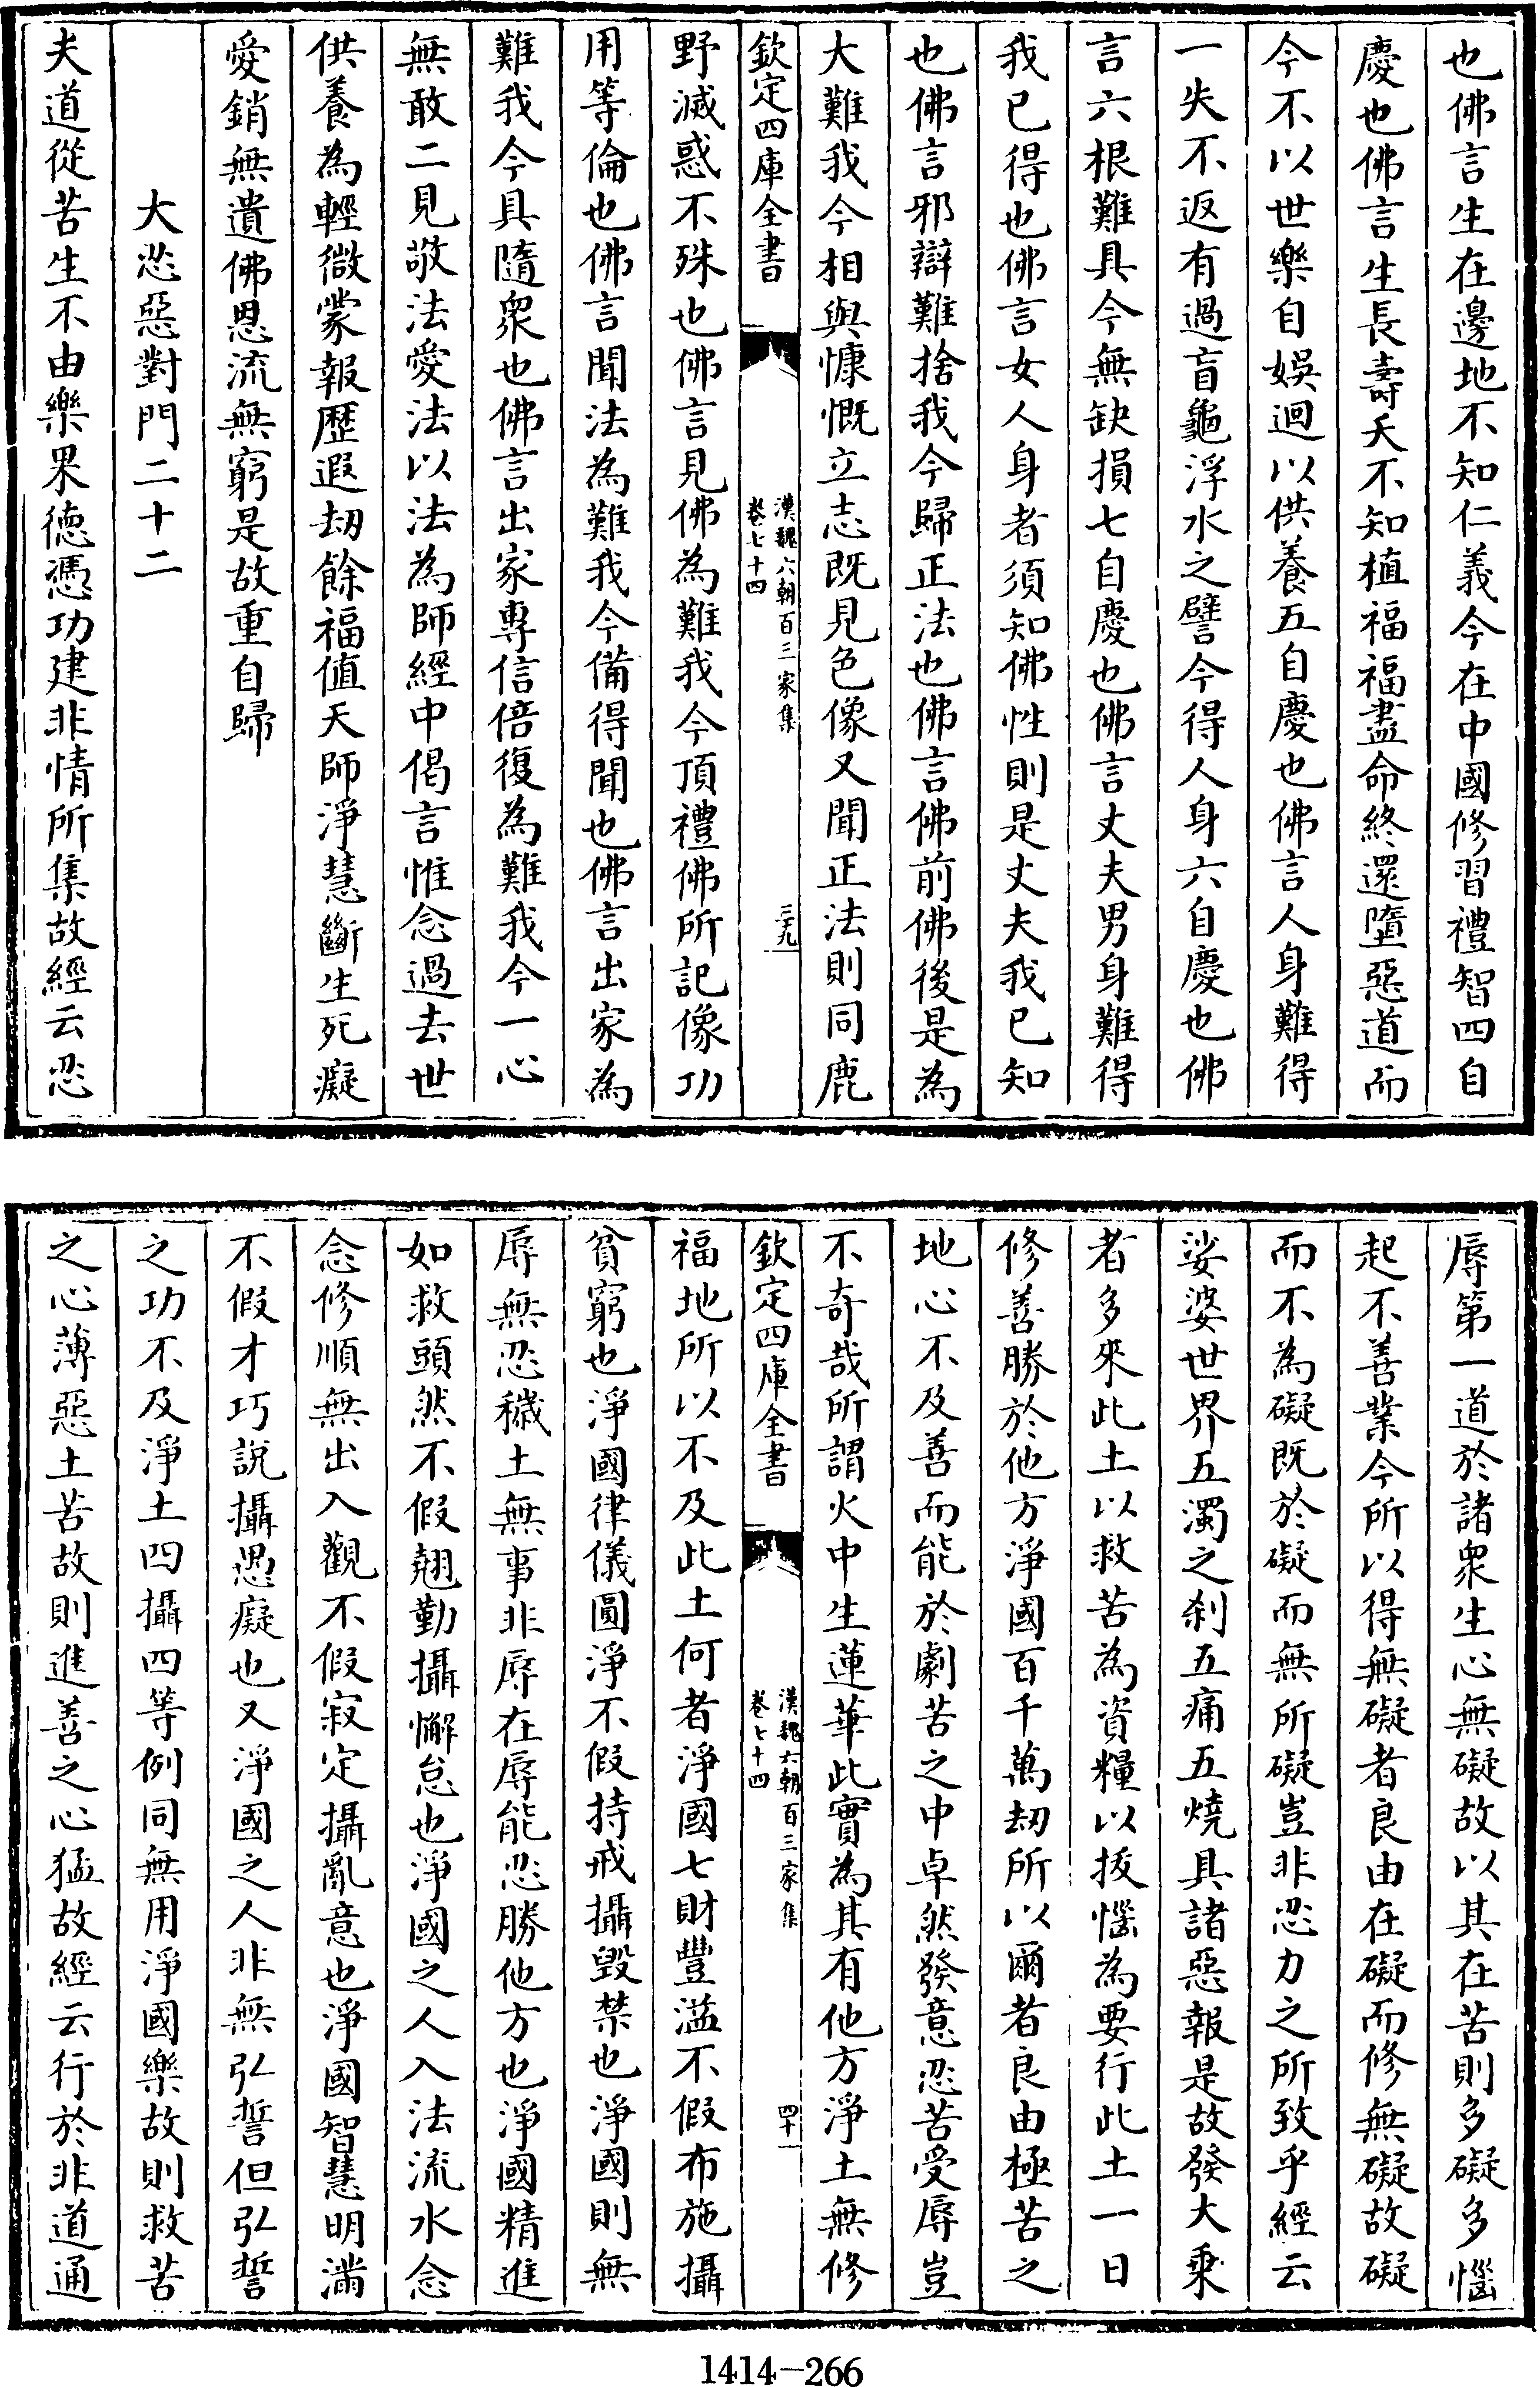 也佛言生在邊地不知仁義今在中國修習禮智四自
慶也佛言生長壽夭不知植福福盡命終還墮惡道而
今不以世樂自娛迴以供養五自慶也佛言人身難得
一失不返有過盲龜浮水之譬今得人身六自慶也佛
言六根難具今無缺損七自慶也佛言丈夫男身難得
我已得也佛言女人身者須知佛性則是丈夫我已知
也佛言邪辯難捨我今歸正法也佛言佛前佛後是為
大難我今相與慷慨立志既見色像又聞正法則同鹿
欽定四庫全書
漢魏六朝百三家集
卷七十四
三十九
野滅惑不殊也佛言見佛為難我今頂禮佛所記像功
用等倫也佛言聞法為難我今備得聞也佛言出家為
難我今具隨衆也佛言出家專信倍復為難我今一心
無敢二見敬法愛法以法為師經中偈言惟念過去世
供養為輕微蒙報歷遐劫餘福值天師淨慧斷生死癡
愛銷無遺佛恩流無窮是故重自歸
大忍惡對門二十二
夫道從苦生不由樂果德憑功建非情所集故經云忍
辱第一道於諸衆生心無礙故以其在苦則多礙多惱
起不善業今所以得無礙者良由在礙而修無礙故礙
而不為礙既於礙而無所礙豈非忍力之所致乎經云
娑婆世界五濁之刹五痛五燒具諸惡報是故發大乗
者多來此土以救苦為資糧以拔惱為要行此土一日
修善勝於他方淨國百千萬劫所以爾者良由極苦之
地心不及善而能於劇苦之中卓然發意忍苦受辱豈
不奇哉所謂火中生蓮華此實為其有他方淨土無修
欽定四庫全書
漢魏六朝百三家集
卷七十四
四十
福地所以不及此土何者淨國七財豐溢不假布施攝
貧窮也淨國律儀圓淨不假持戒攝毀禁也淨國則無
辱無忍穢土無事非辱在辱能忍勝他方也淨國精進
如救頭然不假翹勤攝懈怠也淨國之人入法流水念
念修順無出入觀不假寂定攝亂意也淨國智慧明滿
不假才巧說攝愚癡也又淨國之人非無弘誓但弘誓
之功不及淨土四攝四等例同無用淨國樂故則救苦
之心薄惡土苦故則進善之心猛故經云行於非道通
1414-266